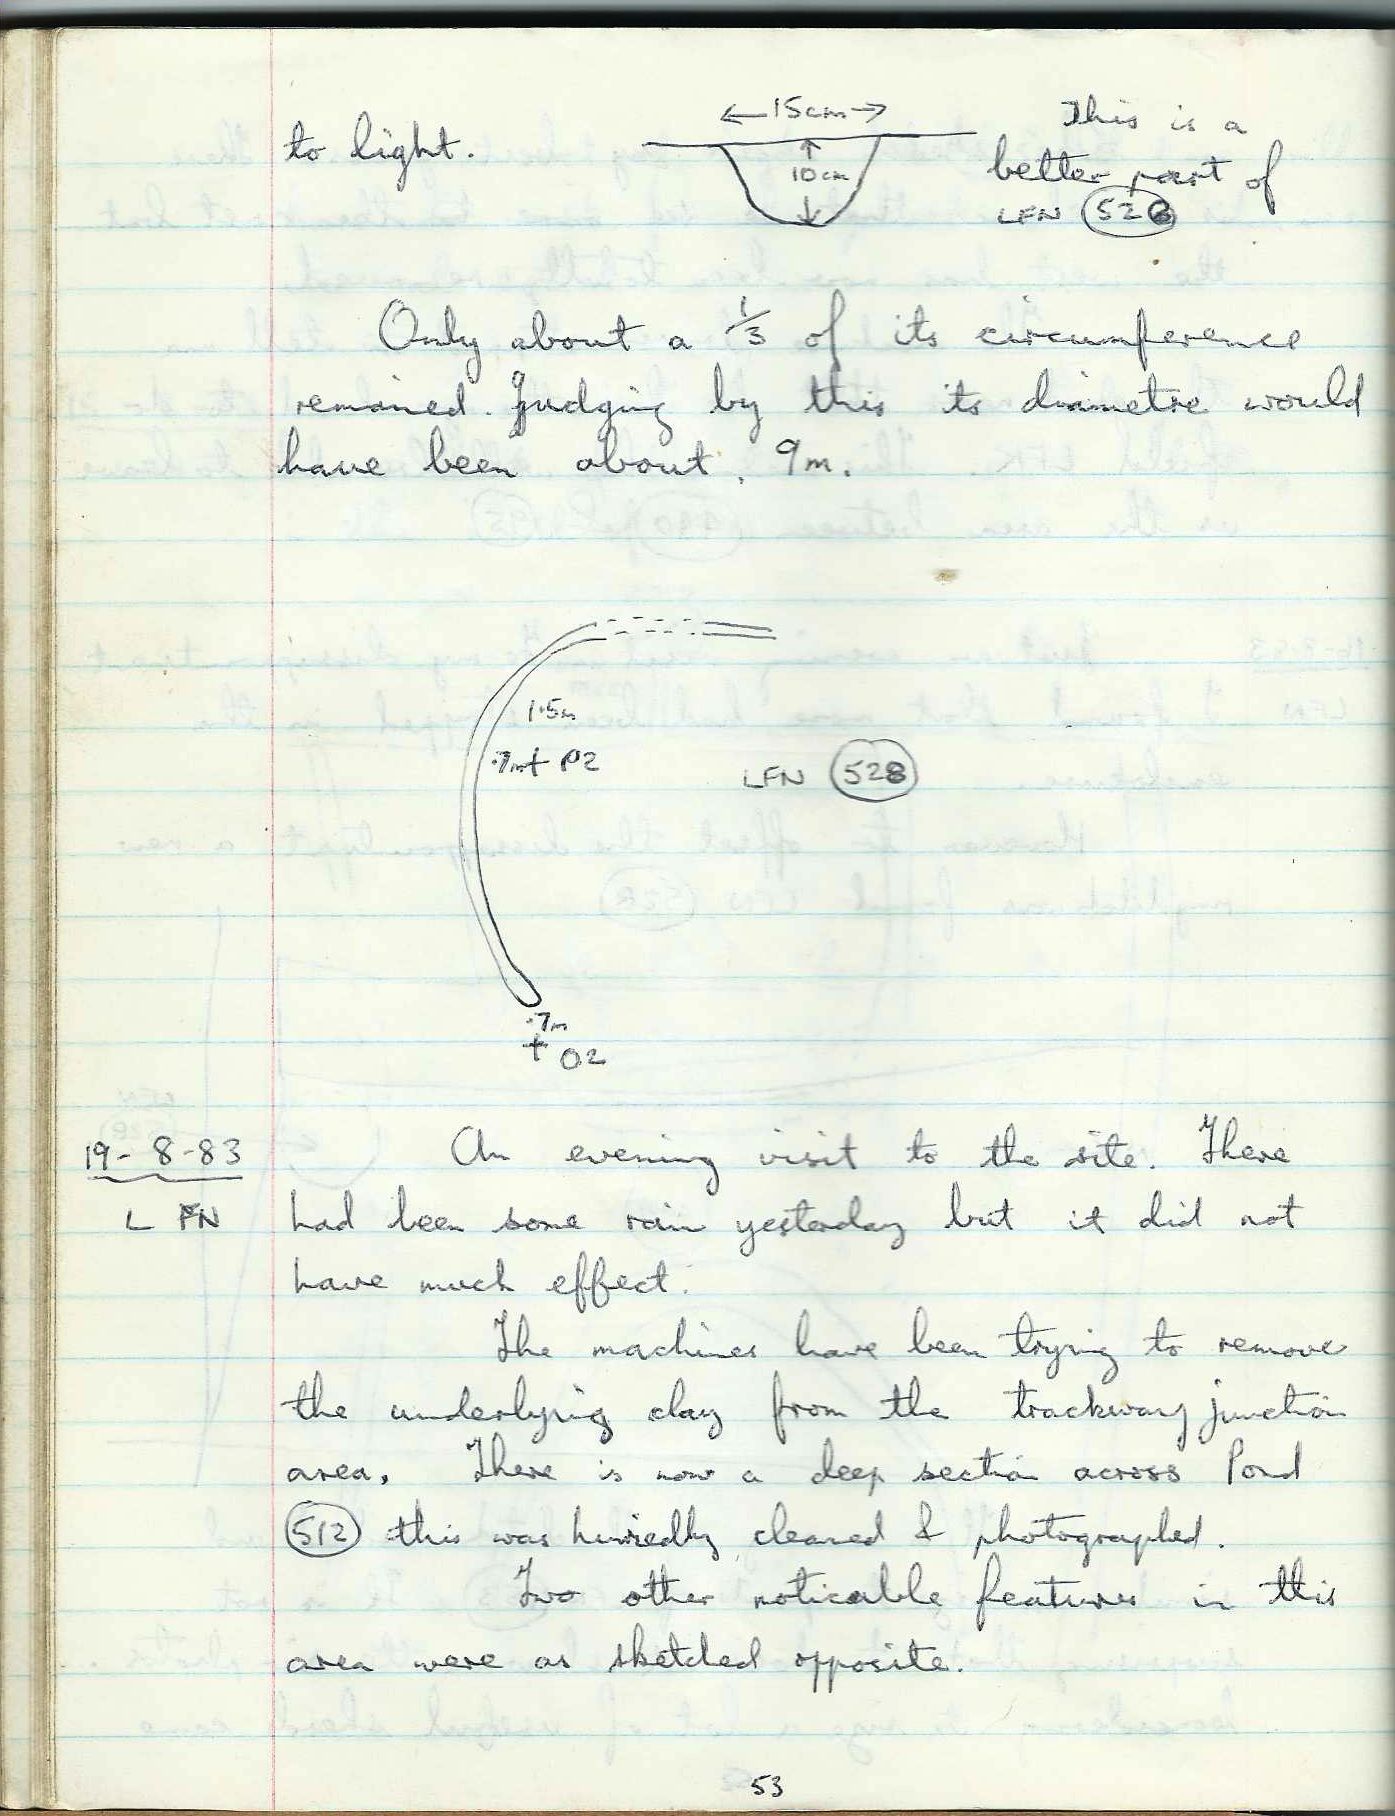 to light.
15cm
10cm
This is a
better part of
LFN 528
Only about a 1/3 of its circumference
remained. Judging by this its diametre would
have been about 9m.
1.5m
.7m + P2
LFN 528
.7m
+ O2
19-8-83
LFN
An evening visit to the site. There
had been some rain yesterday but it did not
have much effect.
The machines have been trying to remove
the underlying clay from the trackway junction
area. There is now a deep section across Pond
512 this was hurriedly cleaned & photographed.
Two other noticable features in this
area were as sketched opposite.
53